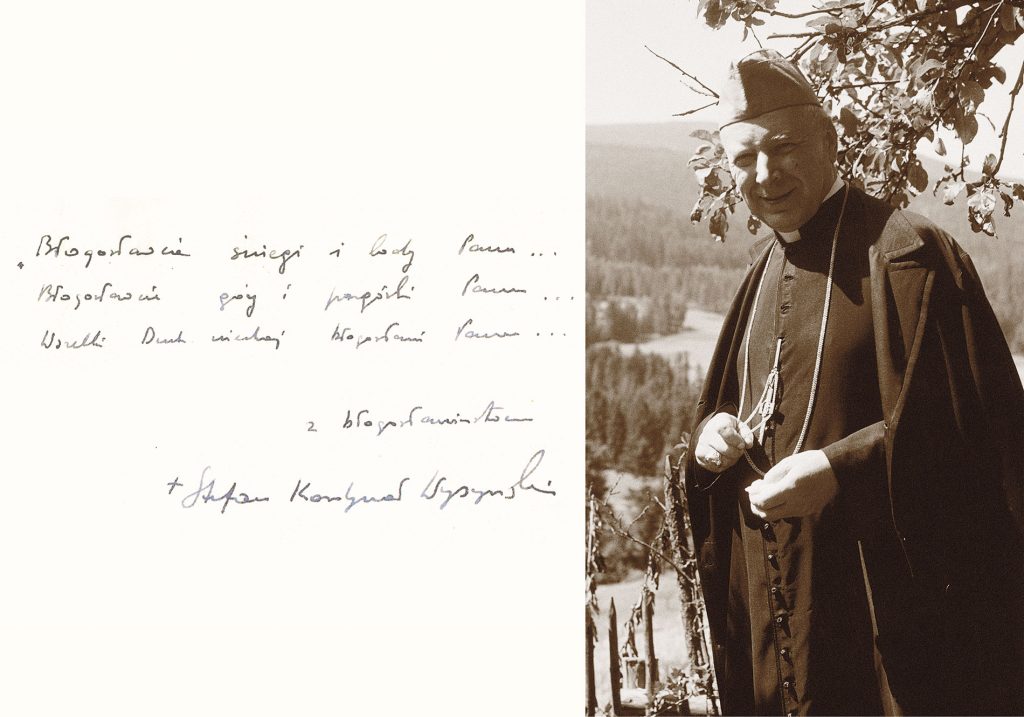 „Błogosławcie śniegi i lody Pana...
Błogosławcie góry i pagórki Pana...
Wszelki Duch niechaj błogosławi Pana...
z błogosławieństwem
+ Stefan Kardynał Wyszyński